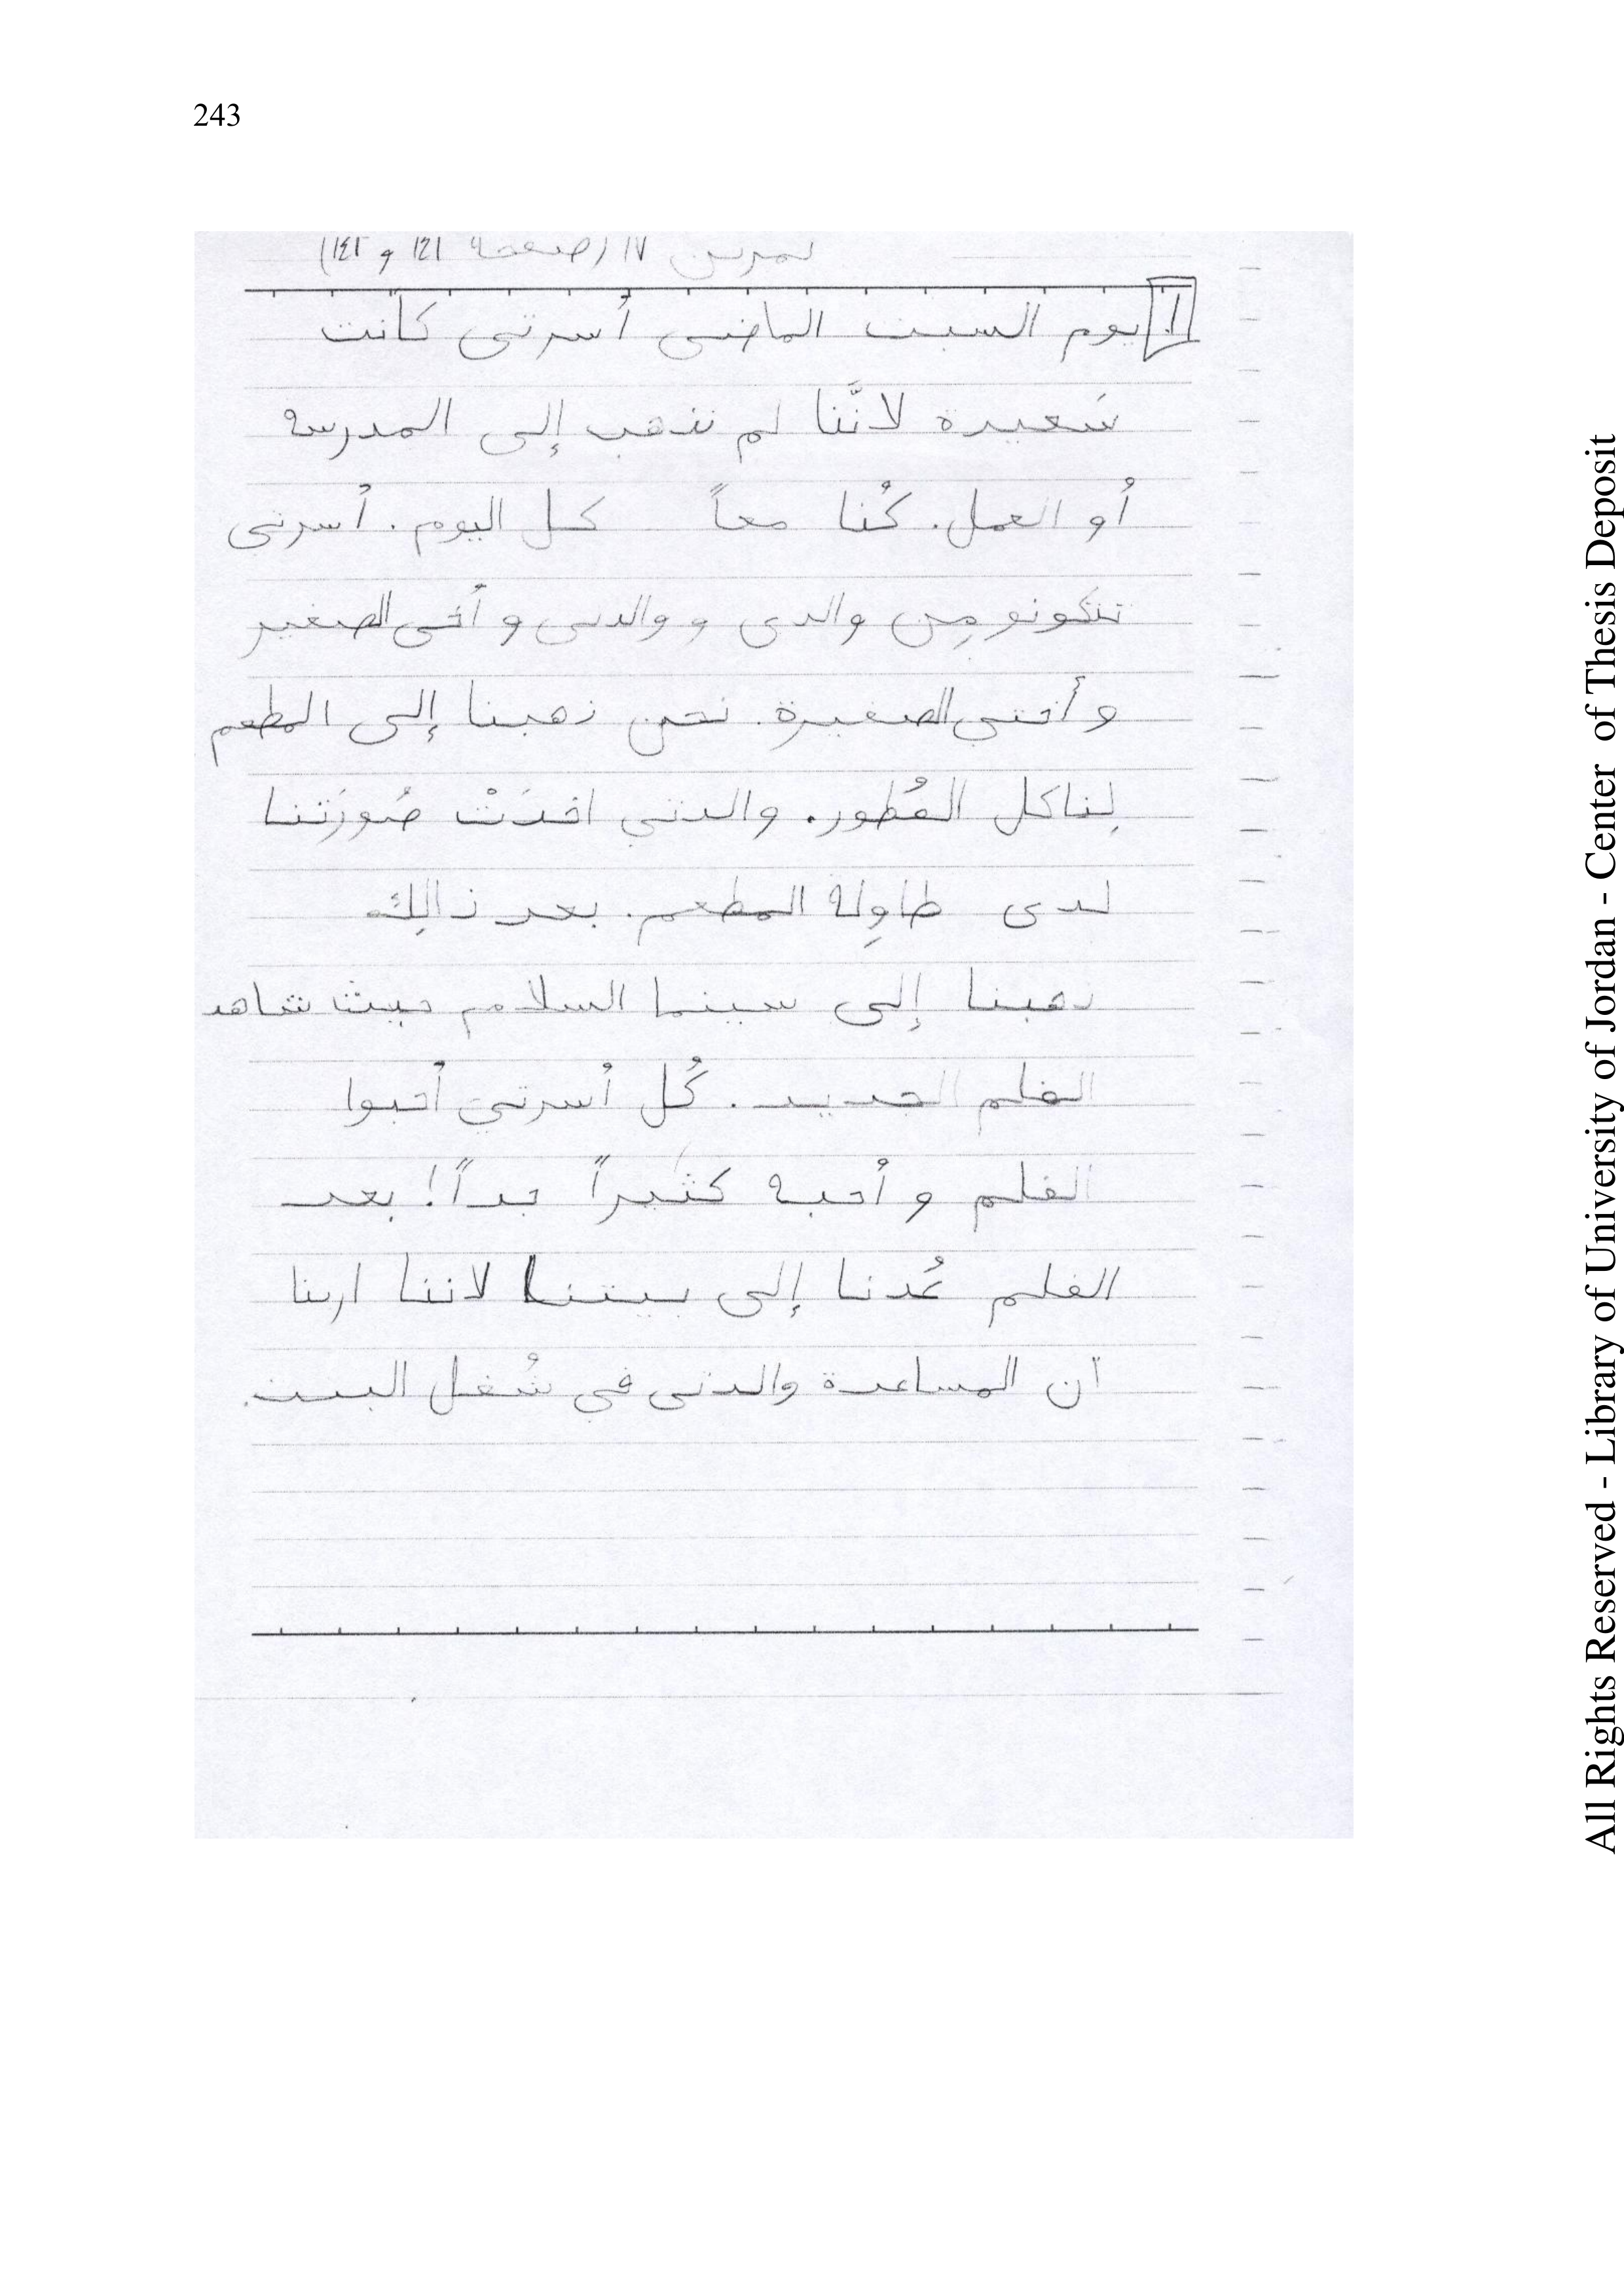 243
تمرين ١٧ (صفحة ١٤١ و ١٤٢)
١. يوم السبت الماضى أُسرتى كانت
سَعيدة لانَّنا لم نذهب إلى المدرسه
أُو العمل. كُنا معاً كل اليوم. أُسرتي
تتكونو مِن والدى و والدتى و أخى الصغير
و أختي الصغيرة. نحن ذهبنا إلى المطعم
لِناكل الفُطور. والدتي اخذَتْ صُورَتنا
لدى طاوِلة المطعم. بعد ذالِك
ذهبنا إلى سينما السلام حيث شاهد
الفلم الجديد. كُل أُسرتي أحبوا
الفلم و أُحبه كثيراً جداً! بعد
الفلم عُدنا إلى بيتنا لاننا اردنا
أن المساعدة والدتى في شُغل البيت.
All Rights Reserved - Library of University of Jordan - Center of Thesis Deposit